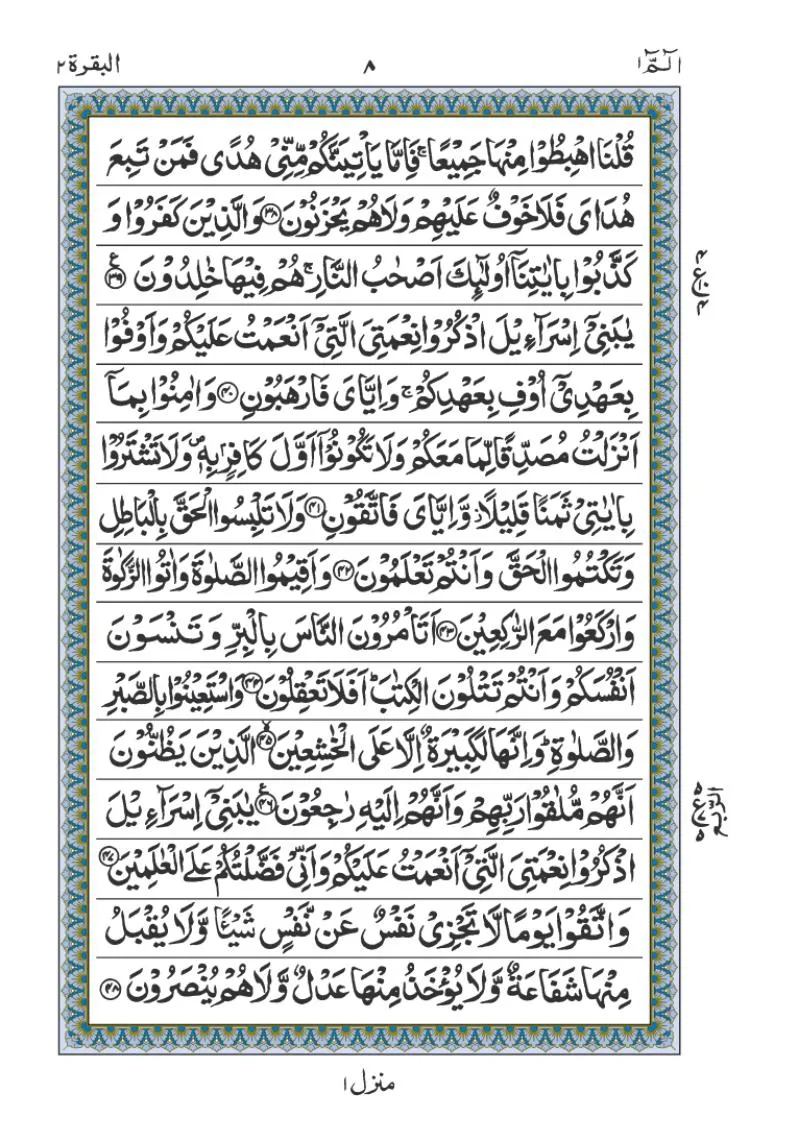 الٓمّٓ ١ ٨ البقرة ٢
قُلْنَا اهْبِطُوْا مِنْهَا جَمِيْعًا ۚ فَاِمَّا يَاْتِيَنَّكُمْ مِّنِّيْ هُدًى فَمَنْ تَبِعَ
هُدَايَ فَلَا خَوْفٌ عَلَيْهِمْ وَلَا هُمْ يَحْزَنُوْنَ ﴿۳۸﴾ وَالَّذِيْنَ كَفَرُوْا وَ
كَذَّبُوْا بِاٰيٰتِنَآ اُولٰٓئِكَ اَصْحٰبُ النَّارِ ۚ هُمْ فِيْهَا خٰلِدُوْنَ ﴿۳۹﴾ ع
يٰبَنِيْٓ اِسْرَآءِيْلَ اذْكُرُوْا نِعْمَتِيَ الَّتِيْٓ اَنْعَمْتُ عَلَيْكُمْ وَاَوْفُوْا
بِعَهْدِيْٓ اُوْفِ بِعَهْدِكُمْ ۚ وَاِيَّايَ فَارْهَبُوْنِ ﴿۴۰﴾ وَاٰمِنُوْا بِمَآ
اَنْزَلْتُ مُصَدِّقًا لِّمَا مَعَكُمْ وَلَا تَكُوْنُوْٓا اَوَّلَ كَافِرٍۢ بِهٖ ۪ وَلَا تَشْتَرُوْا
بِاٰيٰتِيْ ثَمَنًا قَلِيْلًا ؗ وَّاِيَّايَ فَاتَّقُوْنِ ﴿۴۱﴾ وَلَا تَلْبِسُوا الْحَقَّ بِالْبَاطِلِ
وَتَكْتُمُوا الْحَقَّ وَاَنْتُمْ تَعْلَمُوْنَ ﴿۴۲﴾ وَاَقِيْمُوا الصَّلٰوةَ وَاٰتُوا الزَّكٰوةَ
وَارْكَعُوْا مَعَ الرّٰكِعِيْنَ ﴿۴۳﴾ اَتَاْمُرُوْنَ النَّاسَ بِالْبِرِّ وَتَنْسَوْنَ
اَنْفُسَكُمْ وَاَنْتُمْ تَتْلُوْنَ الْكِتٰبَ ؕ اَفَلَا تَعْقِلُوْنَ ﴿۴۴﴾ وَاسْتَعِيْنُوْا بِالصَّبْرِ
وَالصَّلٰوةِ ؕ وَاِنَّهَا لَكَبِيْرَةٌ اِلَّا عَلَى الْخٰشِعِيْنَ ﴿۴۵﴾ الَّذِيْنَ يَظُنُّوْنَ
اَنَّهُمْ مُّلٰقُوْا رَبِّهِمْ وَاَنَّهُمْ اِلَيْهِ رٰجِعُوْنَ ﴿۴۶﴾ ع يٰبَنِيْٓ اِسْرَآءِيْلَ
اذْكُرُوْا نِعْمَتِيَ الَّتِيْٓ اَنْعَمْتُ عَلَيْكُمْ وَاَنِّيْ فَضَّلْتُكُمْ عَلَى الْعٰلَمِيْنَ ﴿۴۷﴾
وَاتَّقُوْا يَوْمًا لَّا تَجْزِيْ نَفْسٌ عَنْ نَّفْسٍ شَيْـًٔا وَّلَا يُقْبَلُ
مِنْهَا شَفَاعَةٌ وَّلَا يُؤْخَذُ مِنْهَا عَدْلٌ وَّلَا هُمْ يُنْصَرُوْنَ ﴿۴۸﴾
الربع
منزل ١